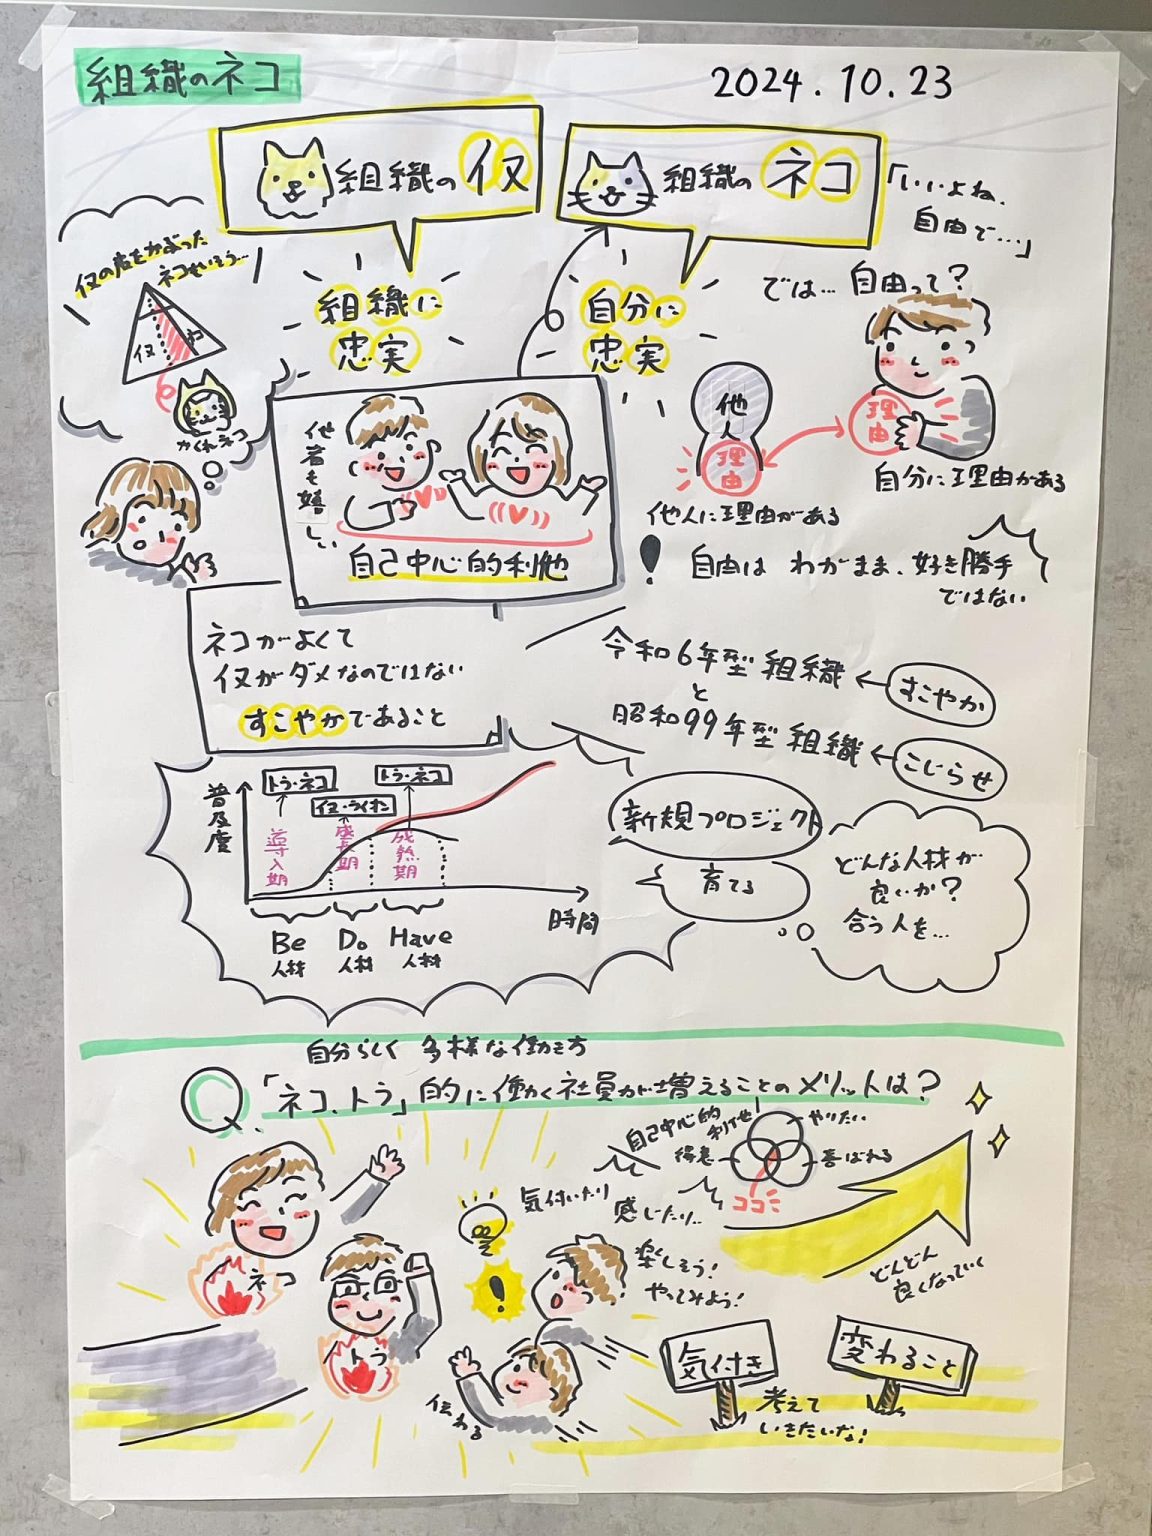 組織のネコ
2024.10.23
組織のイヌ
組織のネコ
「いいよね、
自由で…」
イヌの皮をかぶった
ネコもいそう…
イヌ
ネコ
かくれネコ
組織に
忠実
自分に
忠実
では… 自由って?
他人
理由
理由
他人に理由がある
自分に理由がある
他者も嬉しい
自己中心的利他
自由は わがまま、好き勝手
ではない
ネコがよくて
イヌがダメなのではない
すこやかであること
令和6年型組織 ← すこやか
と
昭和99年型組織 ← こじらせ
普及度
トラ・ネコ
イヌ・ライオン
トラ・ネコ
導入期
成長期
成熟期
時間
Be
人材
Do
人材
Have
人材
新規プロジェクト
育てる
どんな人材が
良いか?
合う人を…
自分らしく 多様な働き方
Q.「ネコ、トラ」的に働く社員が増えることのメリットは?
自己中心的
利他
やりたい
得意
喜ばれる
ココ
気付いたり
感じたり..
ネコ
トラ
楽しそう!
やってみよう!
伝わる
どんどん
良くなっていく
気付き
変わること
考えて
いきたいな!